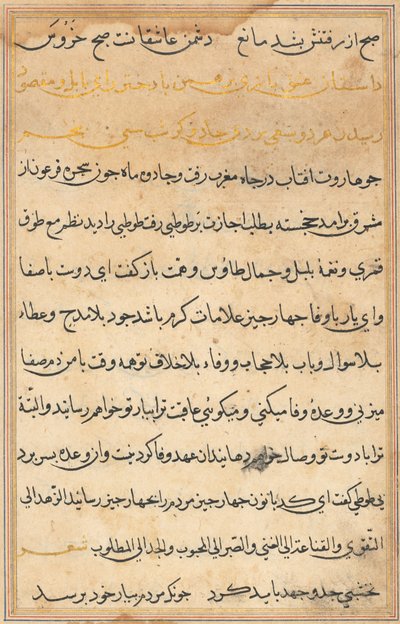 صبح از رفتنش بشد مانع دشمن عاشقانست صبح خروس
داستان عشق بازی برهمن با دختر رای بابل و مقصود
رسیدن هر دو شب سی پنجم
چو هاروت آفتاب در چاه مغرب رفت و جادوه ماه چون سحره فرعون از
مشرق برآمد خجسته بطلب اجازت بر طوطی رفت طوطی را دید نظم مع طوق
قمری و نغمهٔ بلبل و جمال طاؤس و همت باز گفت ای دوست باصفا
وای یار باوفا چهار چیز علامات کرم باشد جود بلا مدح و عطاء
بلا سوال و باب بلا حجاب و وفاء بلا خلاف تو همه وقت با من دم صفا
میزنی و وعدهٔ وفا میکنی و میگوئی عاقبت ترا بیار تو خواهم رسانید و البتّه
ترا با دوست تو وصال خواهم دهانیدن عهد وفا کردنیست و آن وعده بسر برد
نی طوطی گفت ای کدبانو چهار چیز مردم را بچهار چیز رساند الزهد الی
التقوی و القناعة الی الغنی و الصبر الی المحبوب و الجد الی المطلوب شعر
نخشبی جد و جهد باید کرد چونک مردم بیار خود برسد